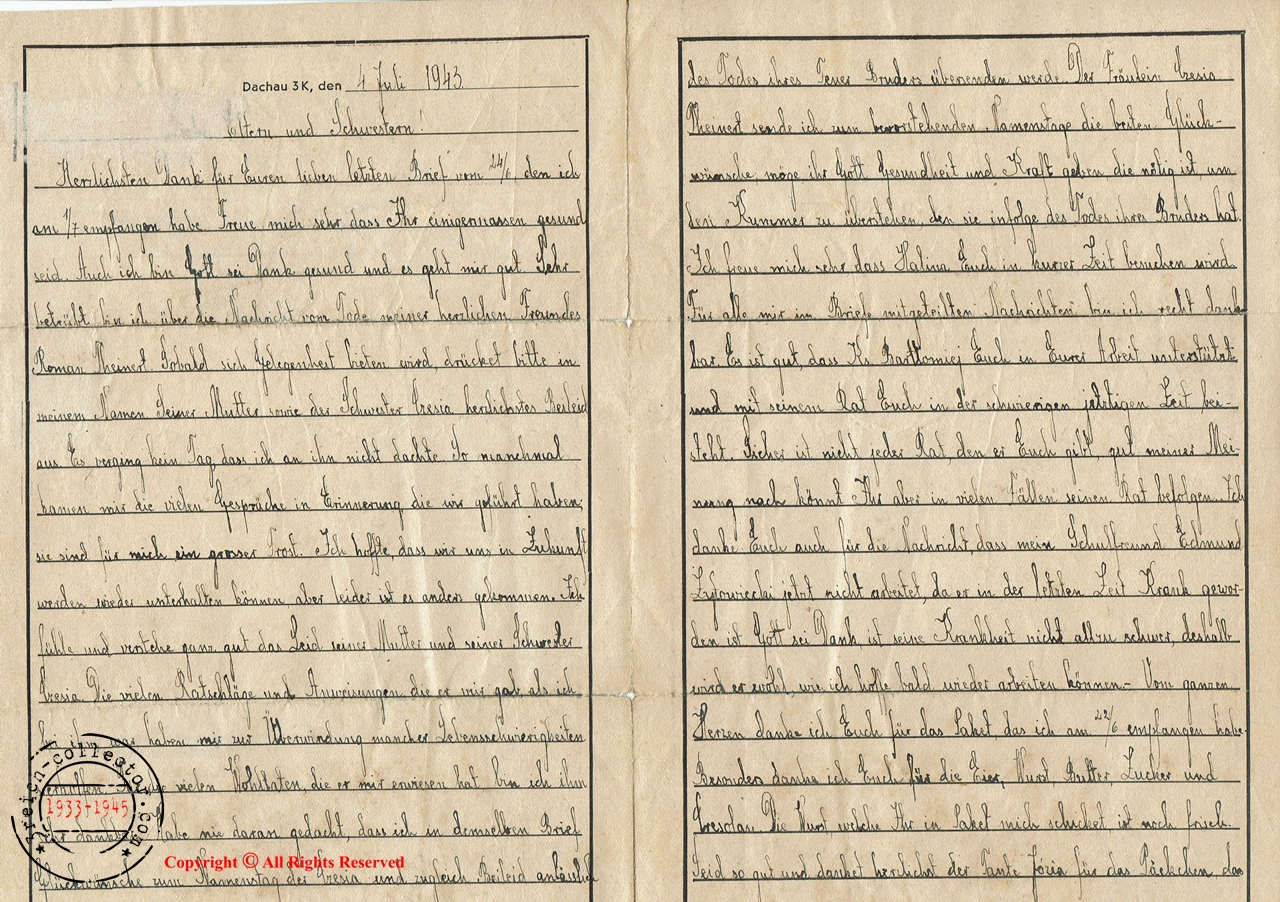 Dachau 3K, den 4 Juli 1943.
Eltern und Schwestern!
Herzlichsten Dank für Euren lieben letzten Brief vom 24/6, den ich
am 1/7 empfangen habe. Freue mich sehr dass Ihr einigermassen gesund
seid. Auch ich bin Gott sei Dank gesund und es geht mir gut. Sehr
betrübt bin ich über die Nachricht vom Tode meiner herzlichen Freundes
Roman Meinert. Sobald sich Gelegenheit bieten wird, drücket bitte in
meinem Namen Seiner Mutter sowie der Schwester Czesia herzlichstes Beileid
aus. Es verging kein Tag, dass ich an ihn nicht dachte. So manchmal
kamen mir die vielen Gespräche in Erinnerung die wir geführt haben,
sie sind für mich ein grosser Trost. Ich hoffte, dass wir uns in Zukunft
werden wieder unterhalten können, aber leider ist es anders gekommen. Ich
fühle und verstehe ganz gut das Leid seiner Mutter und seiner Schwester
Czesia. Die vielen Ratschläge und Anweisungen die er mir gab, als ich
bei ihm war haben mir zur Überwindung mancher Lebensschwierigkeiten
vielen Wohltaten, die er mir erwiesen hat bin ich ihm
dankbar. Habe nie daran gedacht, dass ich in demselben Brief
Glückwünsche zum Namenstag der Czesia und zugleich Beileid anlässlich
des Todes ihres Teuer Bruders übersenden werde. Der Fräulein Czesia
Meinert sende ich zum bevorstehenden Namenstage die besten Glück-
wünsche, möge ihr Gott Gesundheit und Kraft geben, die nötig ist, um
den Kummer zu überstehen, den sie infolge des Todes ihres Bruders hat.
Ich freue mich sehr dass Halina Euch in kurzer Zeit besuchen wird.
Für alle mir im Briefe mitgeteilten Nachrichten bin ich recht dank-
bar. Es ist gut, dass Ks. Bartłomiej Euch in Eurer Arbeit unterstützt
und mit seinem Rat Euch in der schwierigen jetztigen Zeit bei-
steht. Sicher ist nicht jeder Rat, den er Euch gibt, gut meiner Mei-
nung nach könnt Ihr aber in vielen Fällen seinen Rat befolgen. Ich
danke Euch auch für die Nachricht, dass mein Schulfreund Edmund
jetzt nicht arbeitet, da er in der letzten Zeit Krank gewor-
den ist. Gott sei Dank, ist seine Krankheit nicht allzu schwer, deshalb
wird er wohl, wie ich hoffe bald wieder arbeiten können.- Vom ganzen
Herzen danke ich Euch für das Paket, das ich am 22/6 empfangen habe.
Besonders danke ich Euch für die Eier, Wurst, Butter, Zucker und
Die Wurst, welche Ihr in Paket mich schicket, ist noch frisch.
Seid so gut und danket herzlichst der Tante Jozia für das Päckchen, das
reich-collector.com
1933-1945
Copyright © All Rights Reserved